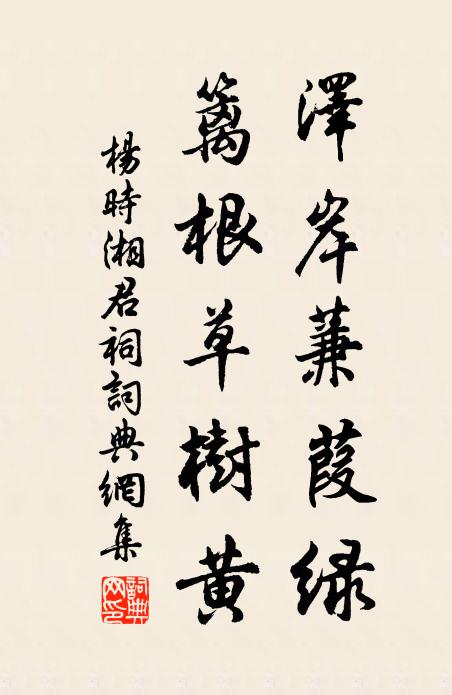 澤岸蒹葭綠
籬根草樹黃
楊時湘君祠詞典網集
詞典網印